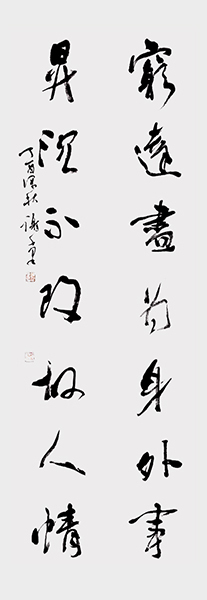 窮達盡為身外事
昇沉不改故人情
丁酉深秋